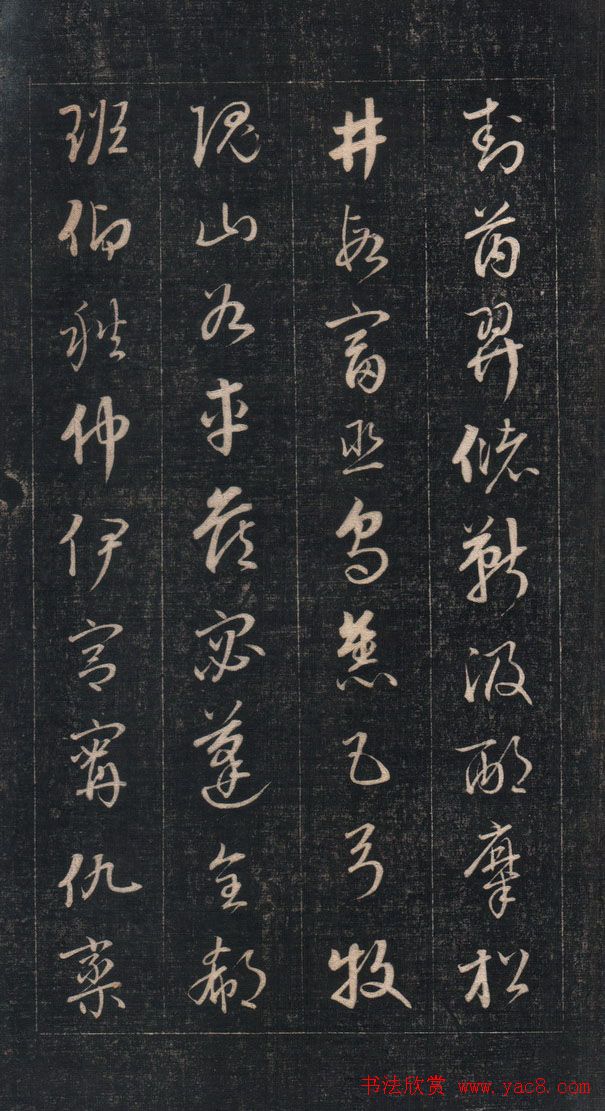 封芮羿儲靳汲邴糜松
井段富巫烏焦巴弓牧
隗山谷車侯宓蓬全郗
班仰秋仲伊宮甯仇欒
书法欣赏 www.yac8.com